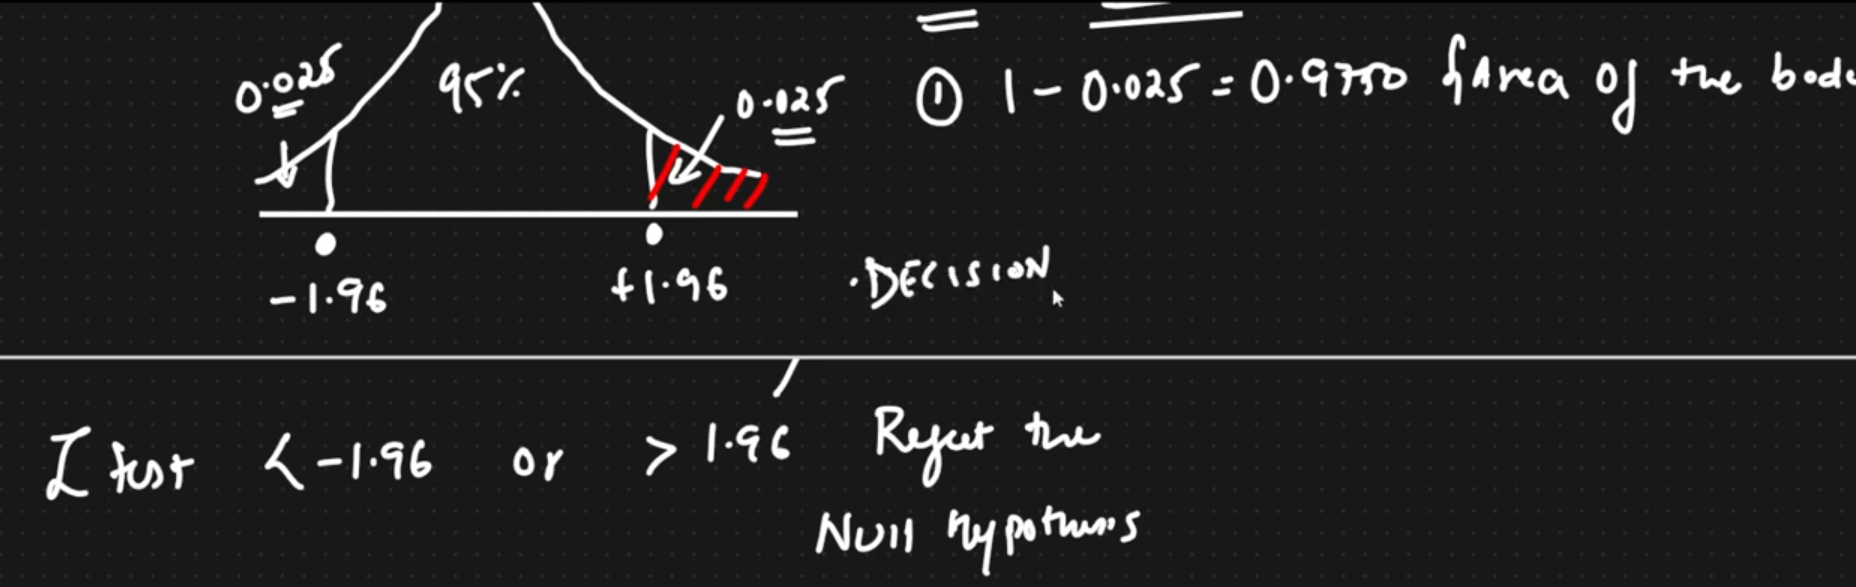 0.025
95%
0.025
① 1 - 0.025 = 0.9750 {Area of the body
-1.96
+1.96
. DECISION
Z test < -1.96 or > 1.96 Reject the
Null Hypothesis